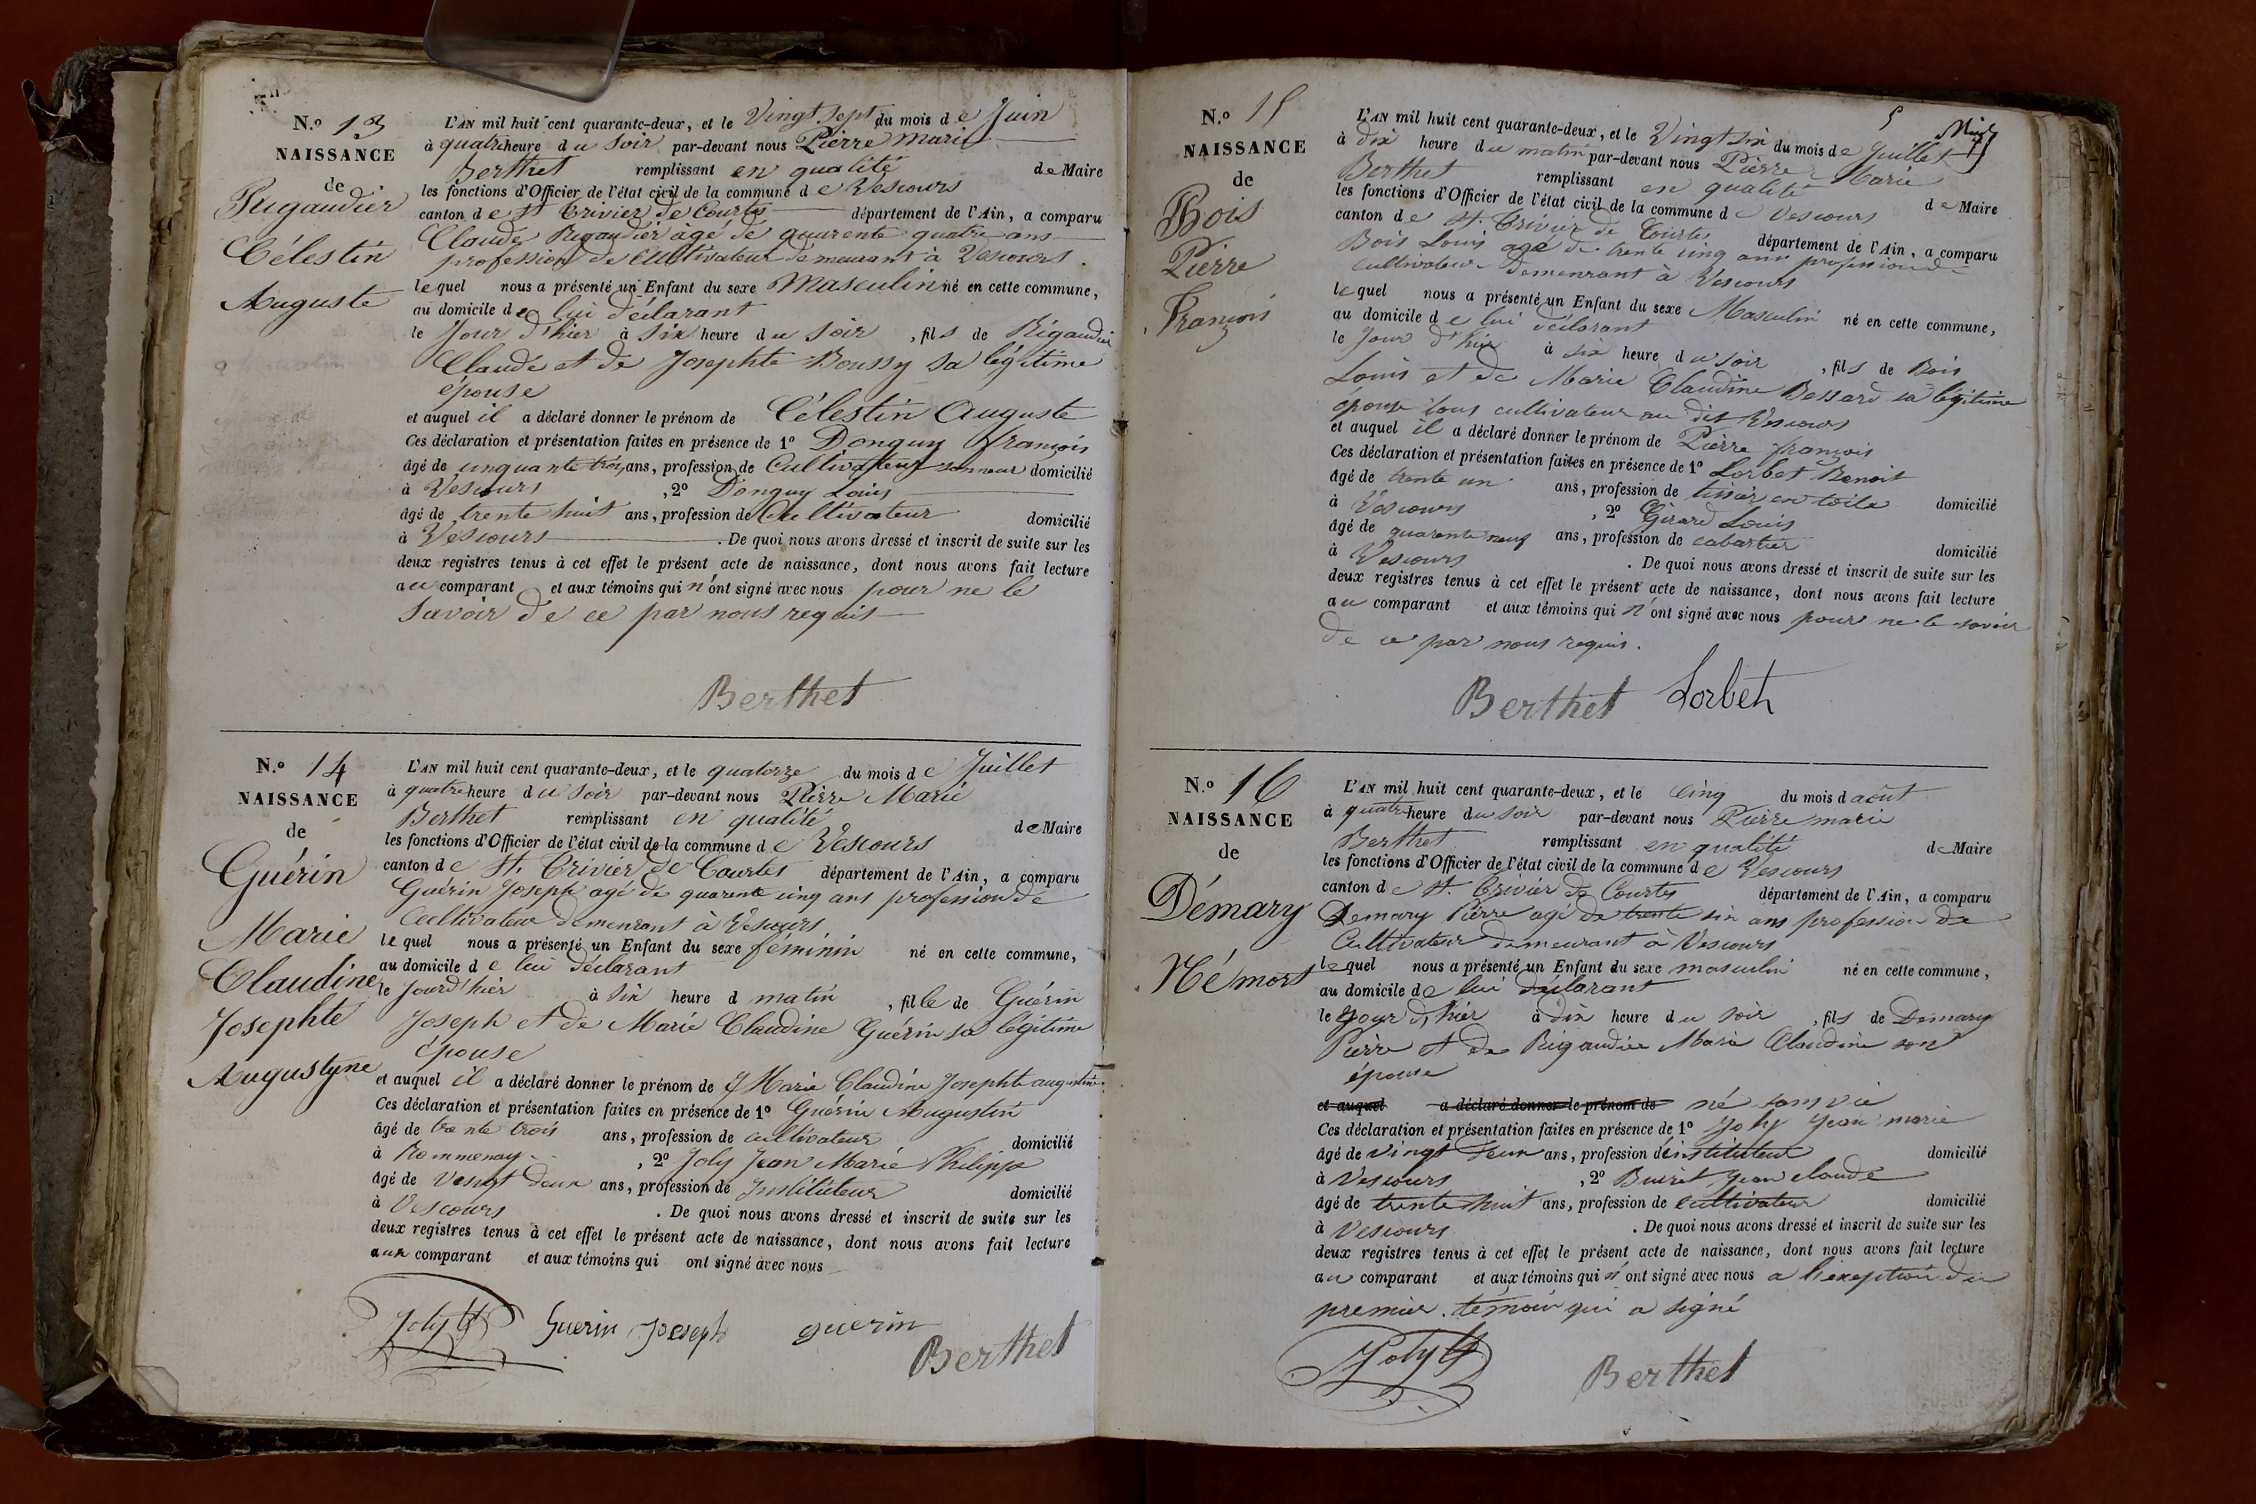 N.º 13
NAISSANCE
de
Rigaudier
Célestin
Auguste
L'AN mil huit cent quarante-deux, et le Vingt sept du mois de Juin
à quatre heure du soir par-devant nous Pierre Marie
Berthet remplissant en qualité de Maire
les fonctions d'Officier de l'état civil de la commune de Vescours
canton de St Trivier de Courtes département de l'Ain, a comparu
Claude Rigaudier agé de quarente quatre ans
profession de Cultivateur demeurant à Vescours.
lequel nous a présenté un Enfant du sexe Masculin né en cette commune,
au domicile de lui déclarant
le Jour d'hier à six heure du soir, fils de Rigaudier
Claude et de Josephte Boussy sa légitime
épouse
et auquel il a déclaré donner le prénom de Célestin Auguste
Ces déclaration et présentation faites en présence de 1º Donguy françois
âgé de cinquante trois ans, profession de Cultivateur domicilié
à Vescours, 2º Donguy Louis
âgé de trente huit ans, profession de Cultivateur domicilié
à Vescours. De quoi nous avons dressé et inscrit de suite sur les
deux registres tenus à cet effet le présent acte de naissance, dont nous avons fait lecture
au comparant et aux témoins qui n'ont signé avec nous pour ne le
savoir de ce par nous requis
Berthet
N.º 14
NAISSANCE
de
Guérin
Marie
Claudine
Josephte
Augustyne
L'AN mil huit cent quarante-deux, et le quatorze du mois de Juillet
à quatre heure du soir par-devant nous Pierre Marie
Berthet remplissant en qualité de Maire
les fonctions d'Officier de l'état civil de la commune de Vescours
canton de St. Trivier de Courtes département de l'Ain, a comparu
Guérin Joseph agé de quarente cinq ans profession de
Cultivateur demeurant à Vescours
lequel nous a présenté un Enfant du sexe féminin né en cette commune,
au domicile de lui déclarant
le Jour d'hier à six heure d matin, fille de Guérin
Joseph et de Marie Claudine Guérin sa légitime
épouse
et auquel il a déclaré donner le prénom de Marie Claudine Josephte augustine
Ces déclaration et présentation faites en présence de 1º Guérin Augustin
âgé de trente trois ans, profession de cultivateur domicilié
à Rommenay, 2º Joly Jean Marie Philippe
âgé de Vingt deux ans, profession de Instituteur domicilié
à Vescours. De quoi nous avons dressé et inscrit de suite sur les
deux registres tenus à cet effet le présent acte de naissance, dont nous avons fait lecture
aux comparant et aux témoins qui ont signé avec nous
Joly Guerin Joseph guerin
Berthet
5
N.º 15
NAISSANCE
de
Bois
Pierre
François
L'AN mil huit cent quarante-deux, et le Vingt six du mois de Juillet
à dix heure du matin par-devant nous Pierre Marie
Berthet remplissant en qualité de Maire
les fonctions d'Officier de l'état civil de la commune de Vescours
canton de St. Trivier de Courtes département de l'Ain, a comparu
Bois Louis agé de trente cinq ans profession de
cultivateur demeurant à Vescours
lequel nous a présenté un Enfant du sexe Masculin né en cette commune,
au domicile de lui déclarant
le Jour d'hier à six heure du soir, fils de Bois
Louis et de Marie Claudine Bessard sa légitime
épouse tous cultivateur au dit Vescours
et auquel il a déclaré donner le prénom de Pierre françois
Ces déclaration et présentation faites en présence de 1º Lorbet Benoit
âgé de trente un ans, profession de tissier en toile domicilié
à Vescours, 2º Girard Louis
âgé de quarente neuf ans, profession de cabartier domicilié
à Vescours. De quoi nous avons dressé et inscrit de suite sur les
deux registres tenus à cet effet le présent acte de naissance, dont nous avons fait lecture
au comparant et aux témoins qui n'ont signé avec nous pour ne le savoir
de ce par nous requis.
Berthet Lorbet
N.º 16
NAISSANCE
de
Démary
Némort
L'AN mil huit cent quarante-deux, et le cinq du mois d août
à quatre heure du soir par-devant nous Pierre marie
Berthet remplissant en qualité de Maire
les fonctions d'Officier de l'état civil de la commune de Vescours
canton de St. Trivier de Courtes département de l'Ain, a comparu
Demary Pierre agé de trente six ans profession de
Cultivateur demeurant à Vescours
lequel nous a présenté un Enfant du sexe masculin né en cette commune,
au domicile de lui déclarant
le jour d'hier à dix heure du soir, fils de Demary
Pierre et de Rigaudier Marie Claudine son
épouse
et auquel a déclaré donner le prénom de né sans vie
Ces déclaration et présentation faites en présence de 1º Joly Jean marie
âgé de vingt deux ans, profession d'instituteur domicilié
à Vescours, 2º Buiret Jean claude
âgé de trente huit ans, profession de cultivateur domicilié
à Vescours. De quoi nous avons dressé et inscrit de suite sur les
deux registres tenus à cet effet le présent acte de naissance, dont nous avons fait lecture
au comparant et aux témoins qui n'ont signé avec nous a l'exeption du
premier témoin qui a signé
Joly Berthet